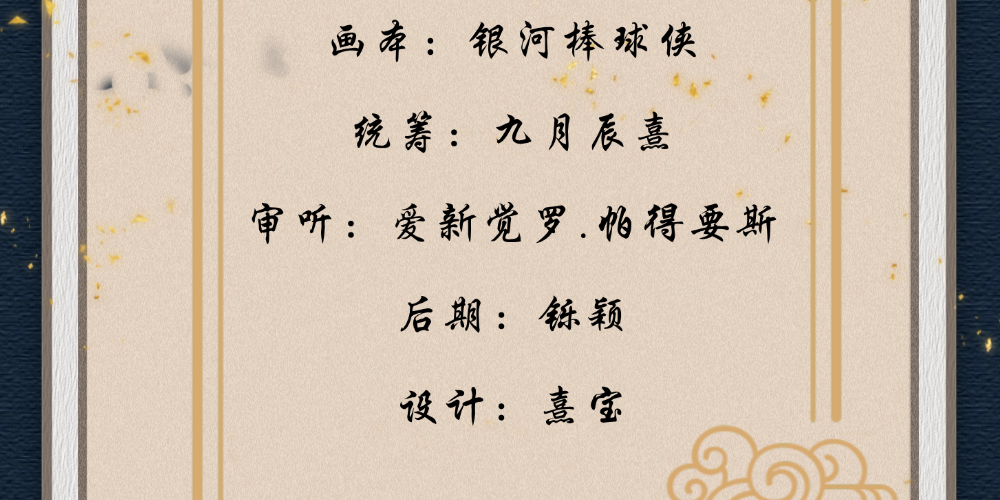 画本：银河棒球侠
统筹：九月辰熹
审听：爱新觉罗.帕得要斯
后期：铄颖
设计：熹宝